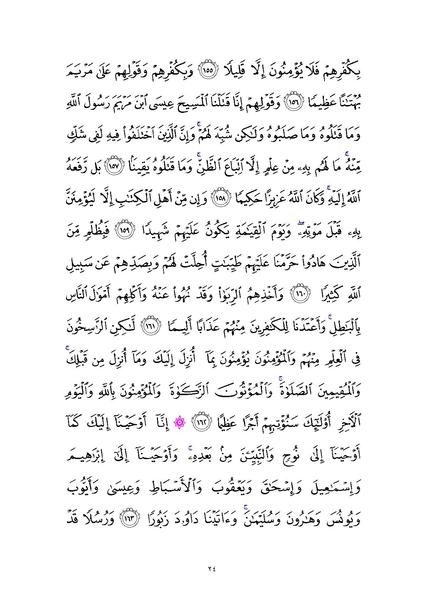 بِكُفْرِهِمْ فَلَا يُؤْمِنُونَ إِلَّا قَلِيلًا ﴿١٥٥﴾ وَبِكُفْرِهِمْ وَقَوْلِهِمْ عَلَىٰ مَرْيَمَ
بُهْتَٰنًا عَظِيمًا ﴿١٥٦﴾ وَقَوْلِهِمْ إِنَّا قَتَلْنَا ٱلْمَسِيحَ عِيسَى ٱبْنَ مَرْيَمَ رَسُولَ ٱللَّهِ
وَمَا قَتَلُوهُ وَمَا صَلَبُوهُ وَلَٰكِن شُبِّهَ لَهُمْ ۚ وَإِنَّ ٱلَّذِينَ ٱخْتَلَفُوا۟ فِيهِ لَفِى شَكٍّ
مِّنْهُ ۚ مَا لَهُم بِهِۦ مِنْ عِلْمٍ إِلَّا ٱتِّبَاعَ ٱلظَّنِّ ۚ وَمَا قَتَلُوهُ يَقِينًۢا ﴿١٥٧﴾ بَل رَّفَعَهُ
ٱللَّهُ إِلَيْهِ ۚ وَكَانَ ٱللَّهُ عَزِيزًا حَكِيمًا ﴿١٥٨﴾ وَإِن مِّنْ أَهْلِ ٱلْكِتَٰبِ إِلَّا لَيُؤْمِنَنَّ
بِهِۦ قَبْلَ مَوْتِهِۦ ۖ وَيَوْمَ ٱلْقِيَٰمَةِ يَكُونُ عَلَيْهِمْ شَهِيدًا ﴿١٥٩﴾ فَبِظُلْمٍ مِّنَ
ٱلَّذِينَ هَادُوا۟ حَرَّمْنَا عَلَيْهِمْ طَيِّبَٰتٍ أُحِلَّتْ لَهُمْ وَبِصَدِّهِمْ عَن سَبِيلِ
ٱللَّهِ كَثِيرًا ﴿١٦٠﴾ وَأَخْذِهِمُ ٱلرِّبَوٰا۟ وَقَدْ نُهُوا۟ عَنْهُ وَأَكْلِهِمْ أَمْوَٰلَ ٱلنَّاسِ
بِٱلْبَٰطِلِ ۚ وَأَعْتَدْنَا لِلْكَٰفِرِينَ مِنْهُمْ عَذَابًا أَلِيمًا ﴿١٦١﴾ لَّٰكِنِ ٱلرَّٰسِخُونَ
فِى ٱلْعِلْمِ مِنْهُمْ وَٱلْمُؤْمِنُونَ يُؤْمِنُونَ بِمَآ أُنزِلَ إِلَيْكَ وَمَآ أُنزِلَ مِن قَبْلِكَ ۚ
وَٱلْمُقِيمِينَ ٱلصَّلَوٰةَ ۚ وَٱلْمُؤْتُونَ ٱلزَّكَوٰةَ وَٱلْمُؤْمِنُونَ بِٱللَّهِ وَٱلْيَوْمِ
ٱلْـَٔاخِرِ أُو۟لَٰٓئِكَ سَنُؤْتِيهِمْ أَجْرًا عَظِيمًا ﴿١٦٢﴾ ۞ إِنَّآ أَوْحَيْنَآ إِلَيْكَ كَمَآ
أَوْحَيْنَآ إِلَىٰ نُوحٍ وَٱلنَّبِيِّـۧنَ مِنۢ بَعْدِهِۦ ۚ وَأَوْحَيْنَآ إِلَىٰٓ إِبْرَٰهِيمَ
وَإِسْمَٰعِيلَ وَإِسْحَٰقَ وَيَعْقُوبَ وَٱلْأَسْبَاطِ وَعِيسَىٰ وَأَيُّوبَ
وَيُونُسَ وَهَٰرُونَ وَسُلَيْمَٰنَ ۚ وَءَاتَيْنَا دَاوُۥدَ زَبُورًا ﴿١٦٣﴾ وَرُسُلًا قَدْ
٢٤